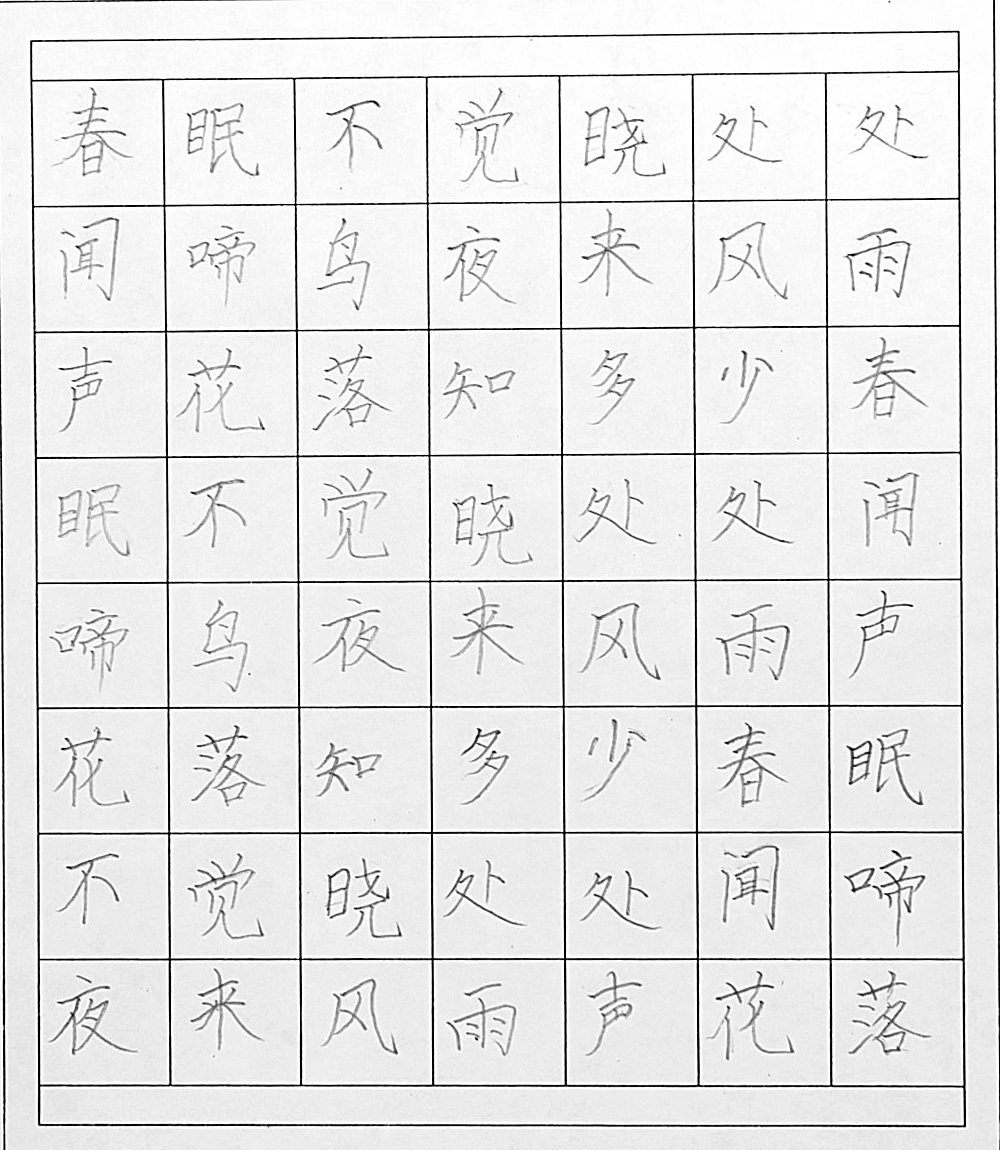 春眠不觉晓处处
闻啼鸟夜来风雨
声花落知多少春
眠不觉晓处处闻
啼鸟夜来风雨声
花落知多少春眠
不觉晓处处闻啼
夜来风雨声花落